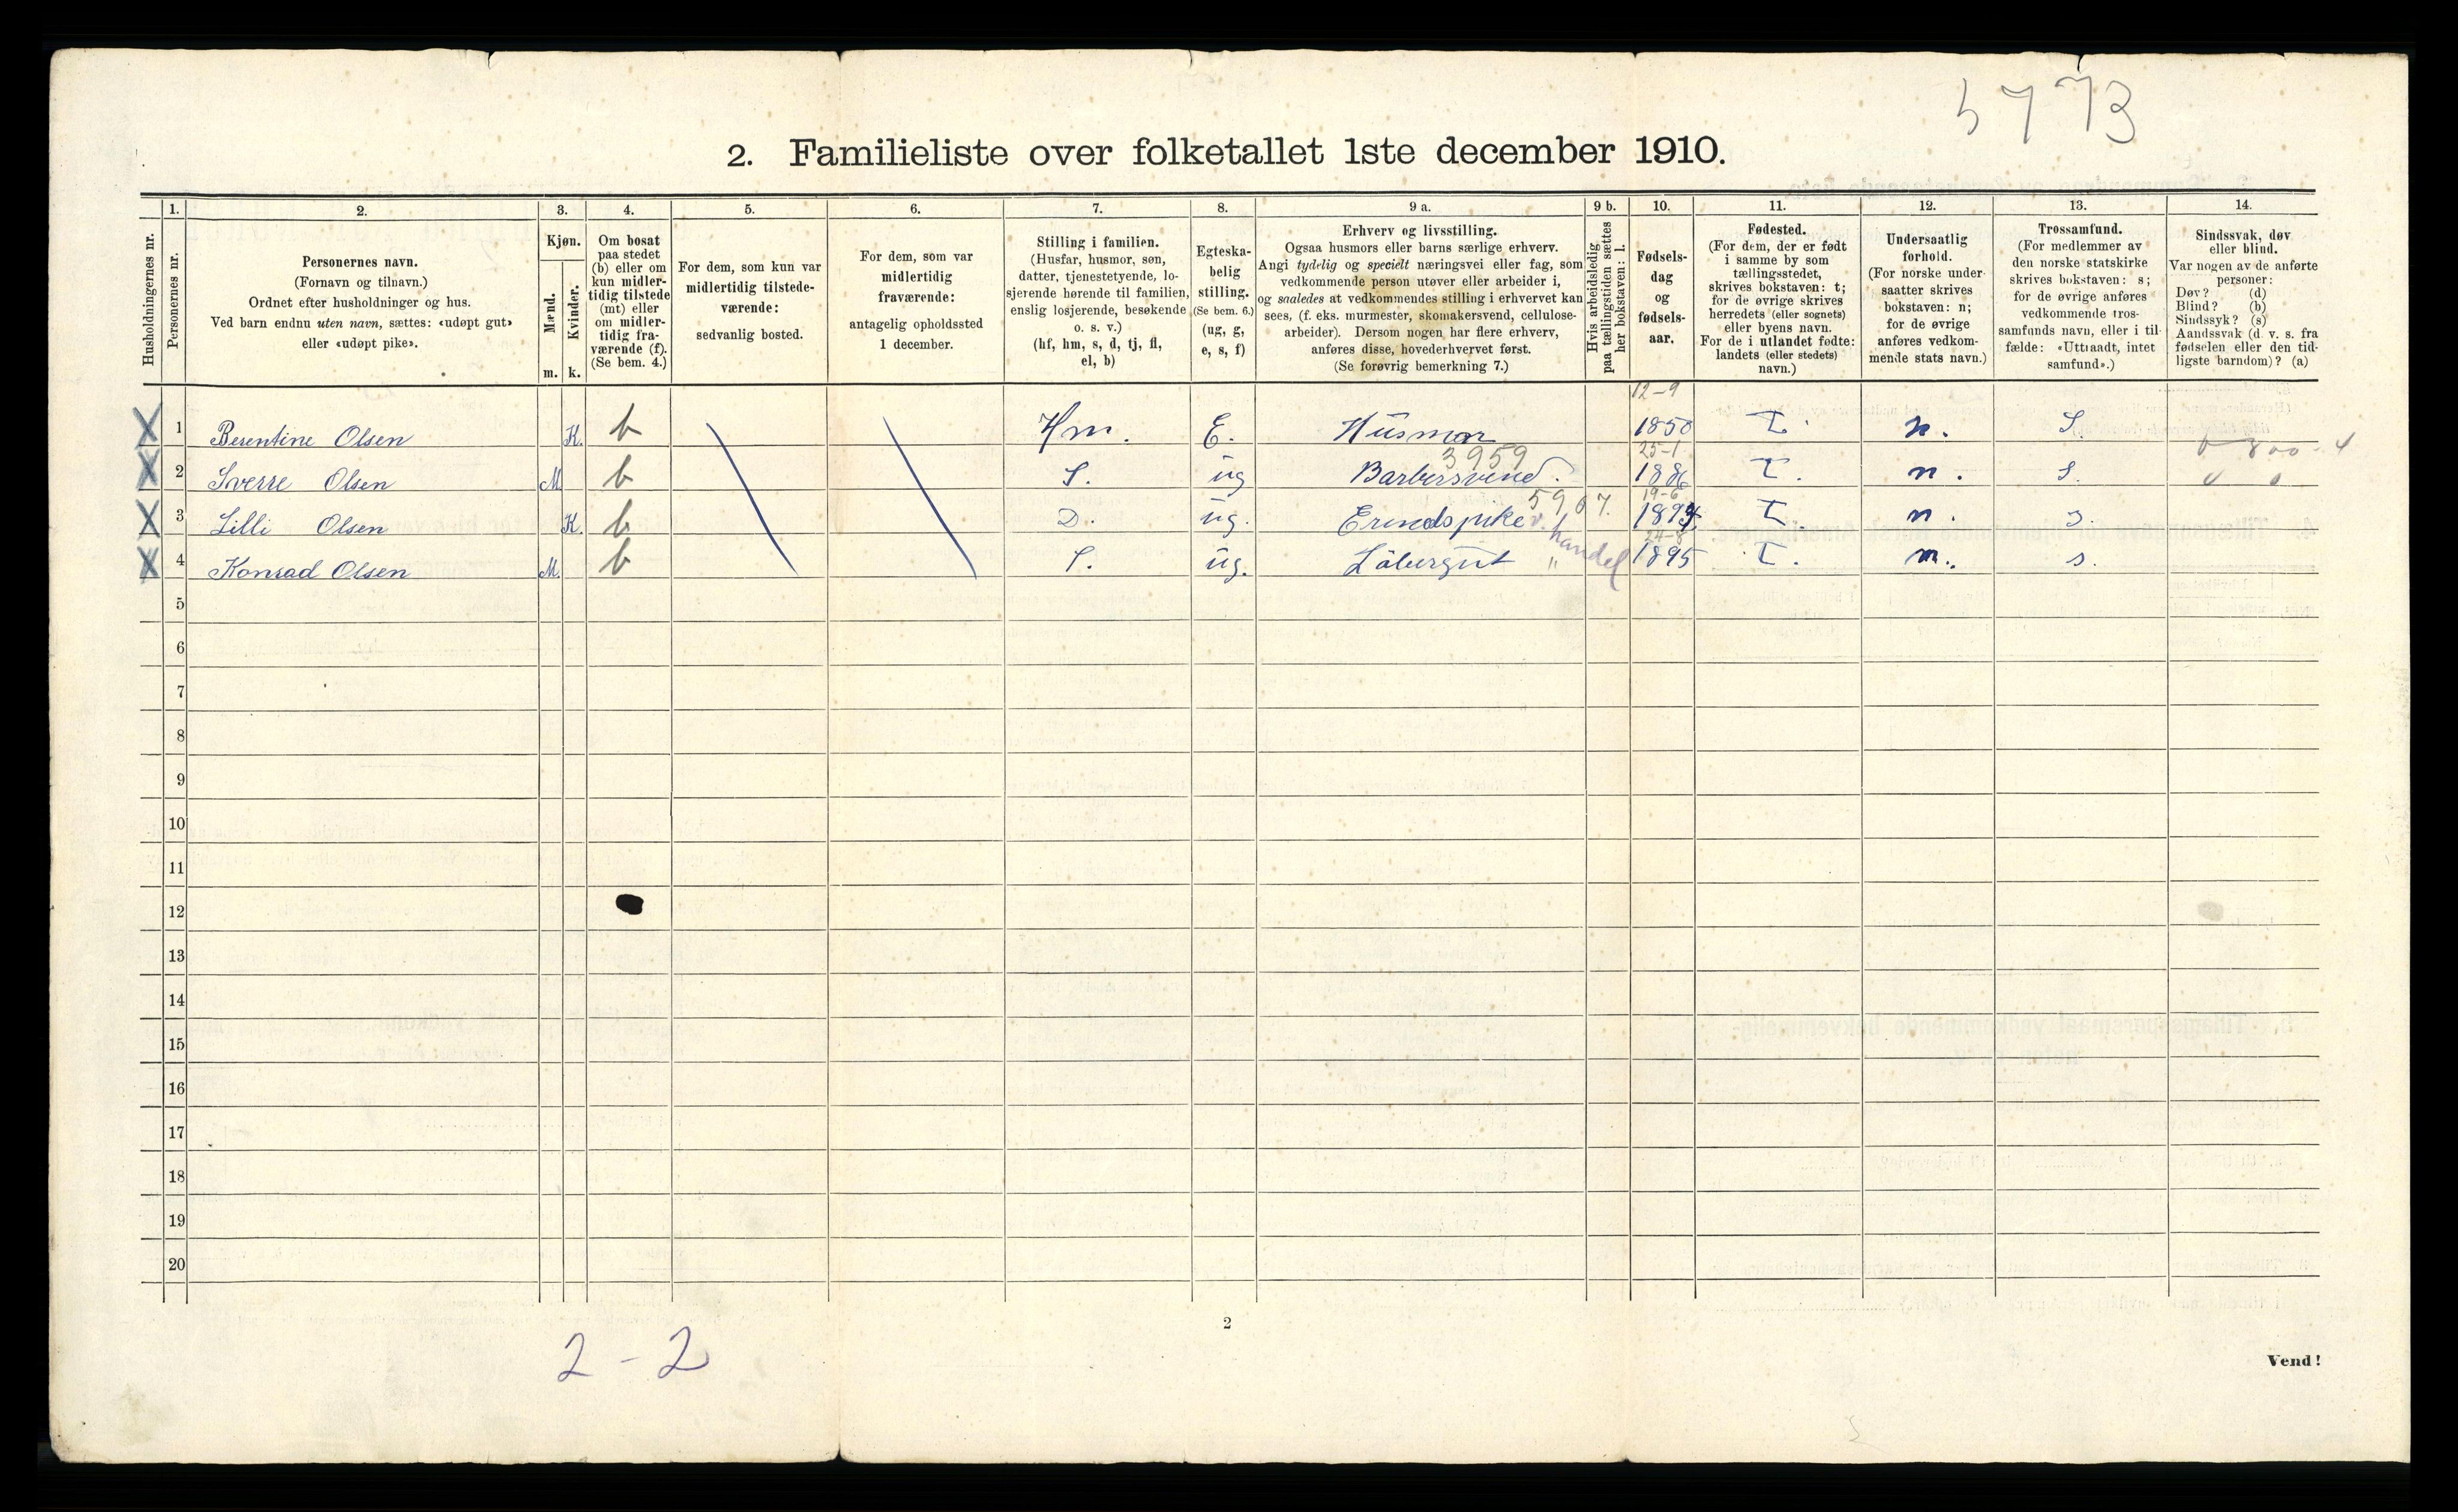 5773
2. Familieliste over folketallet 1ste december 1910.
Husholdningernes nr.
1.
Personernes nr.
2.
Personernes navn.
(Fornavn og tilnavn.)
Ordnet efter husholdninger og hus.
Ved barn endnu uten navn, sættes: «udøpt gut»
eller «udøpt pike».
3.
Kjøn.
Mænd.
Kvinder.
m. k.
4.
Om bosat
paa stedet
(b) eller om
kun midler-
tidig tilstede
(mt) eller
om midler-
tidig fra-
værende (f).
(Se bem. 4.)
5.
For dem, som kun var
midlertidig tilstede-
værende:
sedvanlig bosted.
6.
For dem, som var
midlertidig
fraværende:
antagelig opholdssted
1 december.
7.
Stilling i familien.
(Husfar, husmor, søn,
datter, tjenestetyende, lo-
sjerende hørende til familien,
enslig losjerende, besøkende
o. s. v.)
(hf, hm, s, d, tj, fl,
el, b)
8.
Egteska-
belig
stilling.
(Se bem. 6.)
(ug, g,
e, s, f)
9 a.
Erhverv og livsstilling.
Ogsaa husmors eller barns særlige erhverv.
Angi tydelig og specielt næringsvei eller fag, som
vedkommende person utøver eller arbeider i,
og saaledes at vedkommendes stilling i erhvervet kan
sees, (f. eks. murmester, skomakersvend, cellulose-
arbeider). Dersom nogen har flere erhverv,
anføres disse, hovederhvervet først.
(Se forøvrig bemerkning 7.)
9 b.
Hvis arbeidsledig
paa tællingstiden sættes
her bokstaven: l.
10.
Fødsels-
dag
og
fødsels-
aar.
11.
Fødested.
(For dem, der er født
i samme by som
tællingsstedet,
skrives bokstaven: t;
for de øvrige skrives
herredets (eller sognets)
eller byens navn.
For de i utlandet fødte:
landets (eller stedets)
navn.)
12.
Undersaatlig
forhold.
(For norske under-
saatter skrives
bokstaven: n;
for de øvrige
anføres vedkom-
mende stats navn.)
13.
Trossamfund.
(For medlemmer av
den norske statskirke
skrives bokstaven: s;
for de øvrige anføres
vedkommende tros-
samfunds navn, eller i til-
fælde: «Uttraadt, intet
samfund».)
14.
Sindssvak, døv
eller blind.
Var nogen av de anførte
personer:
Døv? (d)
Blind? (b)
Sindssyk? (s)
Aandssvak (d. v. s. fra
fødselen eller den tid-
ligste barndom)? (a)
X 1 Berentine Olsen K. b Hm. E. Husmor 12-9 1850 T. n. S.
X 2 Sverre Olsen M b S. ug 3959 Barbersvend. 25-1 1886 T. n. S.
X 3 Lilli Olsen K. b D. ug. Erendspike v. handel 5907. 19-6 1894 T n. s.
X 4 Konrad Olsen M. b S. ug. Löbergut " 24-8 1895 T. n. s.
5
6
7
8
9
10
11
12
13
14
15
16
17
18
19
20
2
2 - 2
Vend!